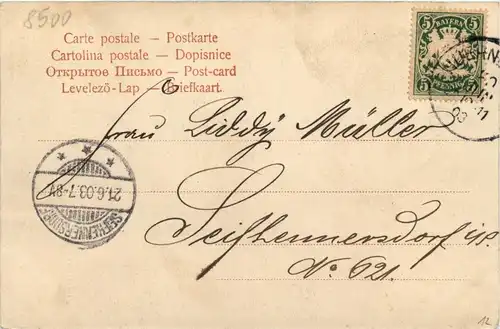 8500
Carte postale — Postkarte
Cartolina postale — Dopisnice
Открытое Письмо — Post-card
Levelező-Lap — Briefkaart.
5 BAYERN 5
5 PFENNIG 5
21.6.03.7-8V.
SEIFHENNERSDORF
Frau Liddy Müller
Seifhennersdorf i/S.
No. 621.
12